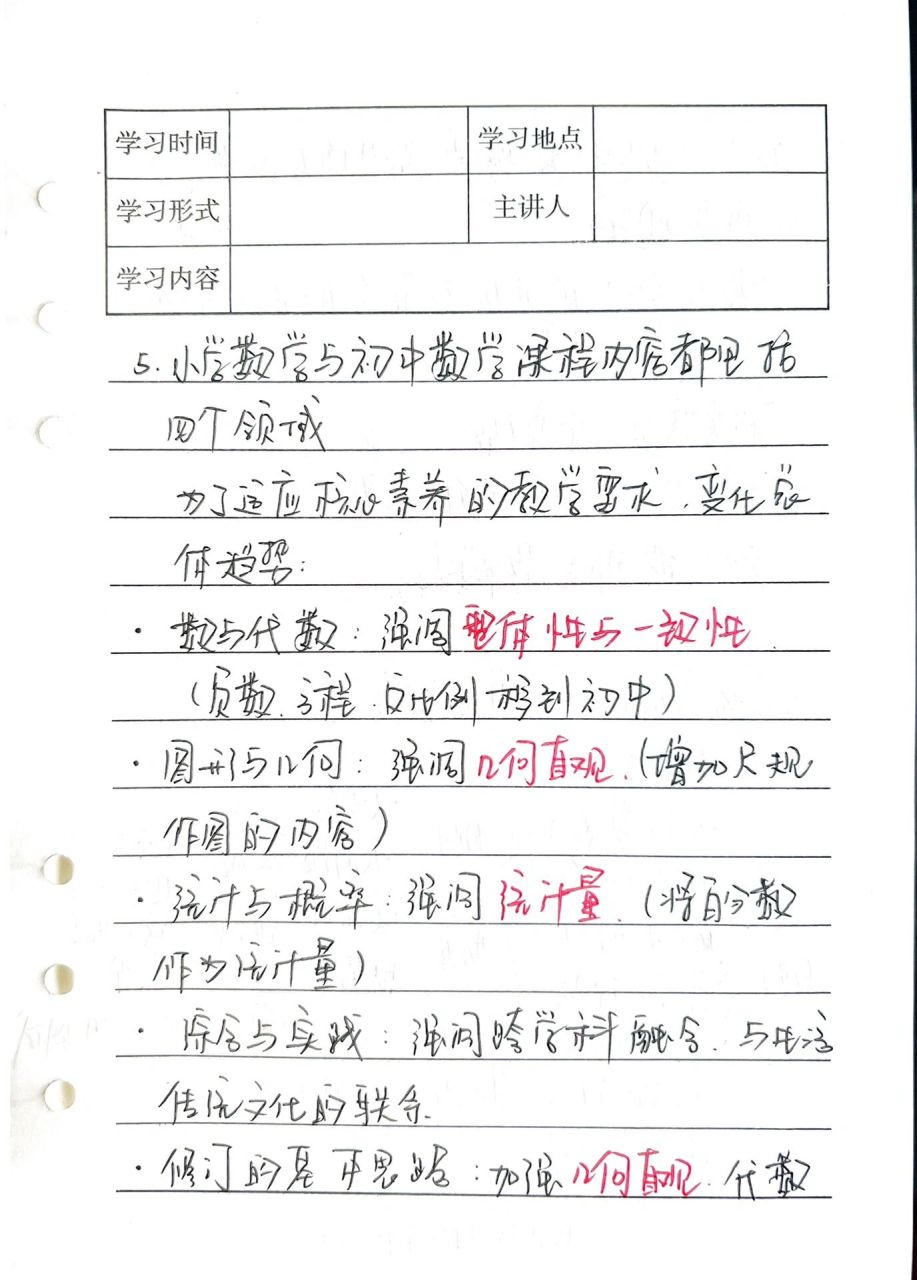 学习时间 学习地点
学习形式 主讲人
学习内容
5. 小学数学与初中数学课程内容都包括
四个领域
为了适应核心素养的教学要求,变化总
体趋势:
· 数与代数:强调整体性与一致性.
(负数、方程、反比例移到初中)
· 图形与几何:强调几何直观.(增加尺规
作图的内容)
· 统计与概率:强调统计量.(将百分数
作为统计量)
· 综合与实践:强调跨学科融合、与生活
传统文化的联系.
· 修订的基本思路:加强几何直观、代数